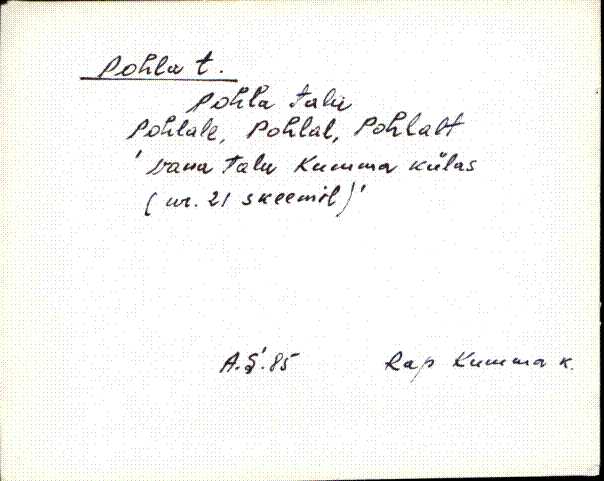 Pohla t.
Pohla talu
Pohlale, Pohlal, Pohlalt
'vana talu Kumma külas
(nr. 21 skeemil)'
A.Š.'85 Rap Kumma k.